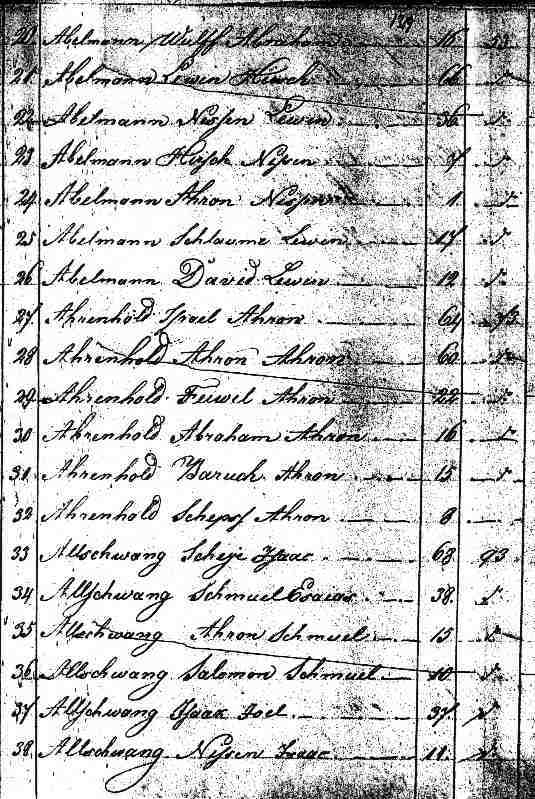 129
20 Abelmann Wulff Abraham 16 53
21 Abelmann Lewin Hirsch 66
22 Abelmann Nissen Lewin 36
23 Abelmann Hirsch Nissen
24 Abelmann Ahron Nissen 1
25 Abelmann Schlaume Lewin 17
26 Abelmann David Lewin 12
27 Ahrenhold Israel Ahron 64
28 Ahrenhold Ahron Ahron 60
29 Ahrenhold Feiwel Ahron 22
30 Ahrenhold Abraham Ahron 16
31 Ahrenhold Baruch Ahron 15
32 Ahrenhold Scheps Ahron 8
33 Allschwang Scheje Isaac 68 93
34 Allschwang Schmuel Esaias 38
35 Allschwang Ahron Schmuel 15
36 Allschwang Salomon Schmuel 10
37 Allschwang Isaac Joel 37
38 Allschwang Nissen Isaac 11